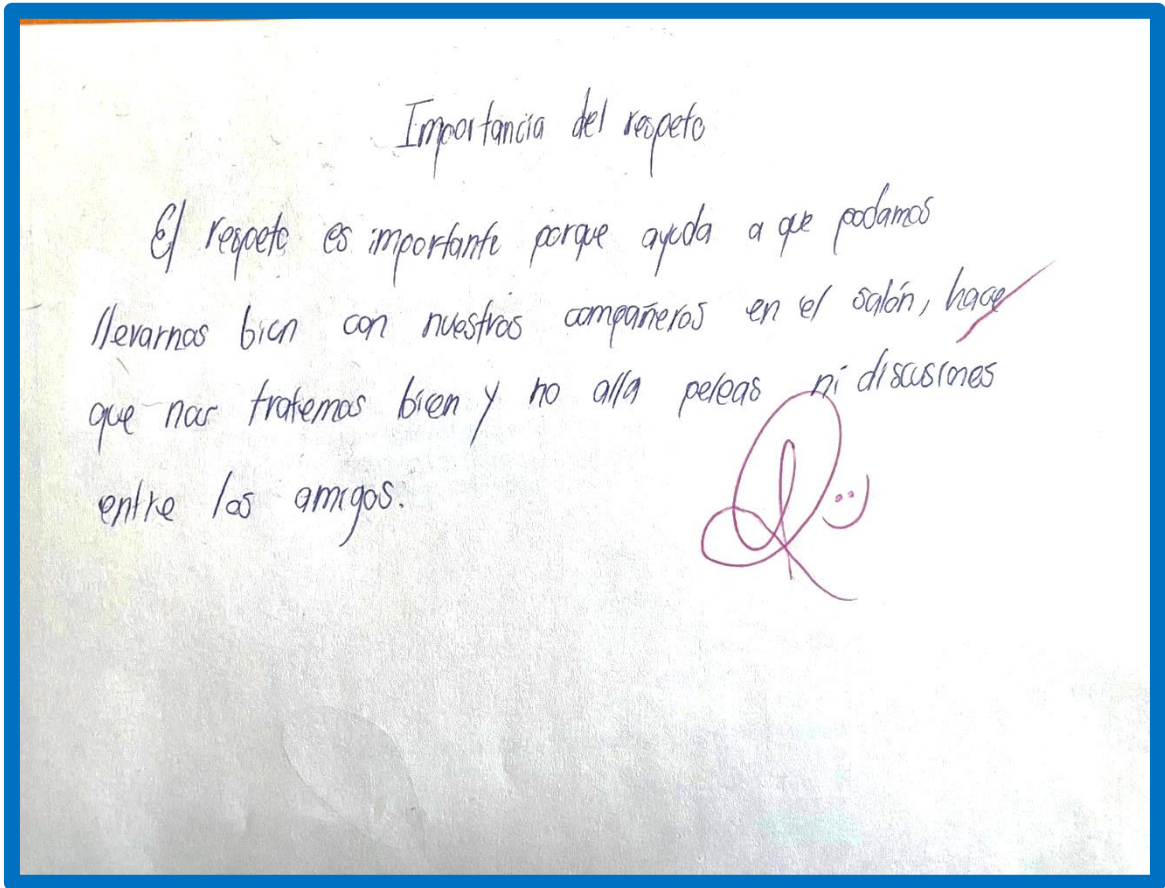 Importancia del respeto
El respeto es importante porque ayuda a que podamos
llevarnos bien con nuestros compañeros en el salón, hace
que nos tratemos bien y no alla peleas ni discusiones
entre los amigos.